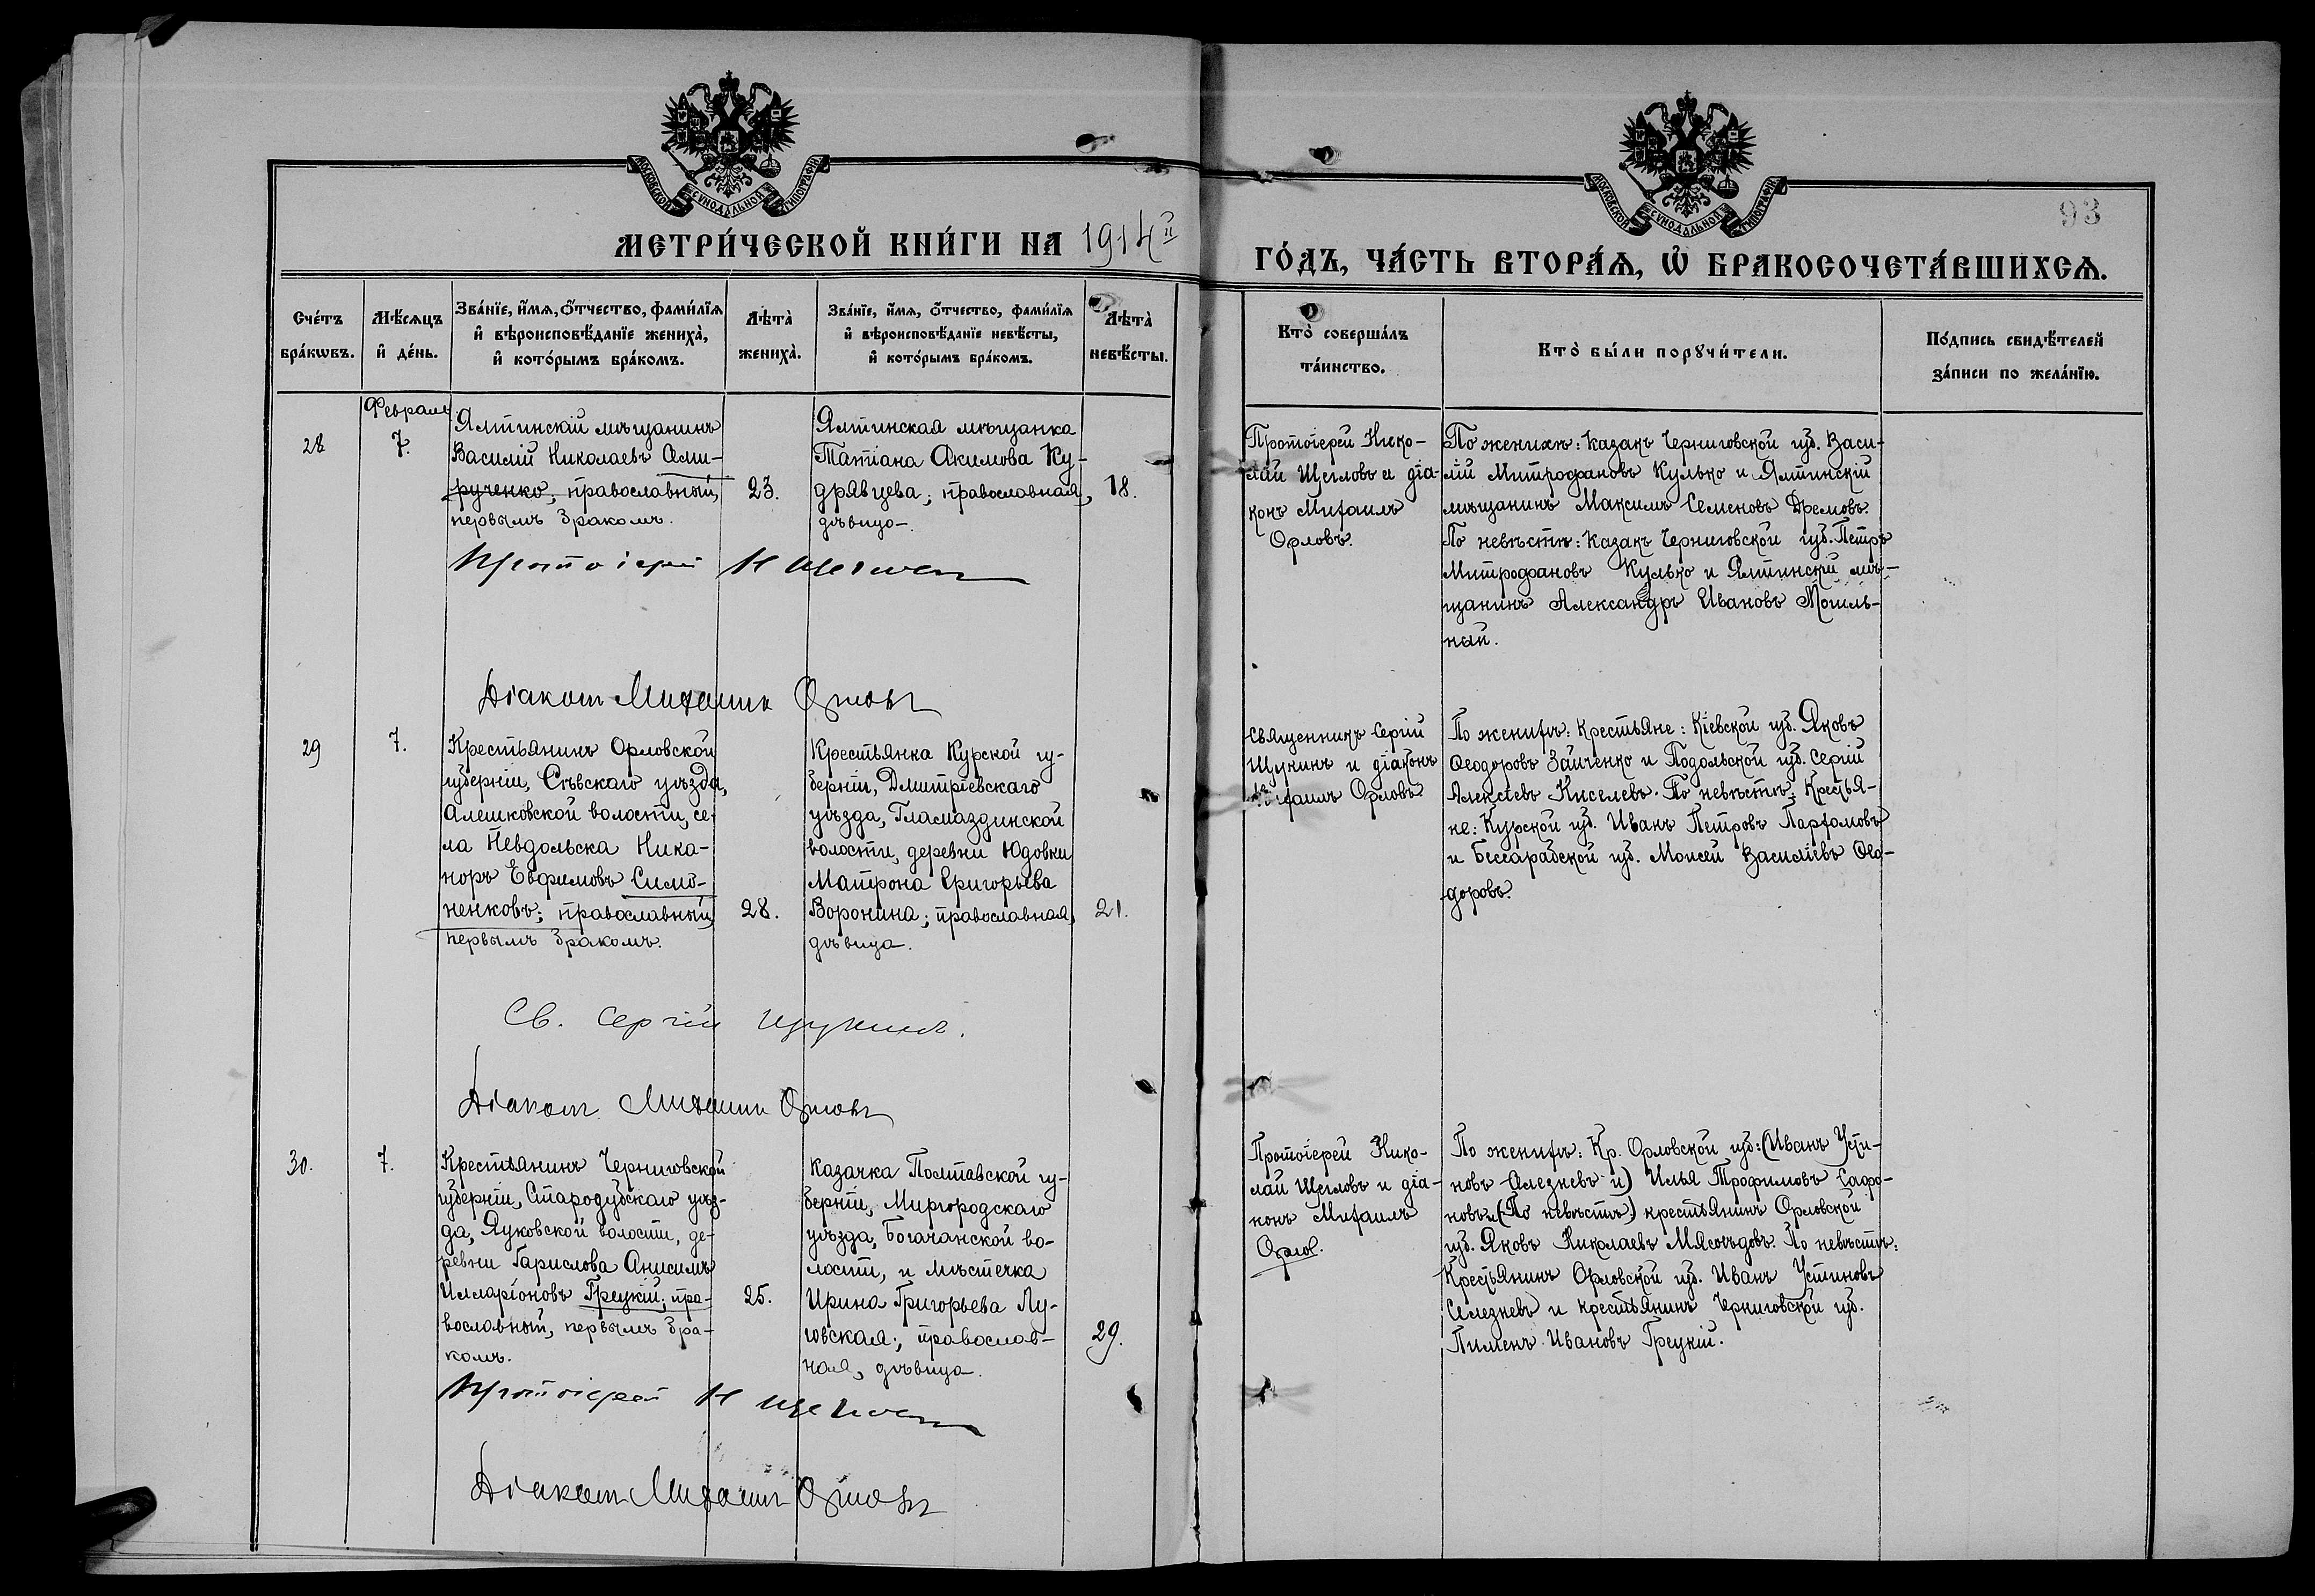 МОСКОВСКОЙ СѴНОДАЛЬНОЙ ТИПОГРАФІИ
МОСКОВСКОЙ СѴНОДАЛЬНОЙ ТИПОГРАФІИ
93
МЕТРИ́ЧЕСКОЙ КНИ́ГИ НА 1914й
ГО́ДЪ, ЧА́СТЬ ВТОРА́Ѧ, Ѡ БРАКОСОЧЕТА́ВШИХСѦ.
Сче́тъ бра́кѡвъ.
Мѣ́сѧцъ и҆ де́нь.
Зва́нїе, и҆́мѧ, ѻ҆́тчество, фами́лїѧ
и҆ вѣроисповѣ́данїе жениха̀,
и҆ кото́рымъ бра́комъ.
Лѣта̀ жениха̀.
Зва́нїе, и҆́мѧ, ѻ҆́тчество, фами́лїѧ
и҆ вѣроисповѣ́данїе невѣ́сты,
и҆ кото́рымъ бра́комъ.
Лѣта̀ невѣ́сты.
Кто̀ соверша́лъ
та́инство.
Кто̀ бы́ли порꙋчи́тели.
По́дпись свидѣ́телей
за́писи по жела́нїю.
Февраль.
28
7.
Ялтинскій мѣщанинъ
Василій Николаевъ Али-
рученко, православный,
первымъ бракомъ.
23.
Ялтинская мѣщанка
Татіана Акимова Ку-
дрявцева; православная,
дѣвица.
18.
Протоіерей Нико-
лай Щегловъ и діа-
конъ Михаилъ
Орловъ.
По женихѣ: казакъ Черниговской губ. Васи-
лій Митрофановъ Кулько и Ялтинскій
мѣщанинъ Максимъ Семеновъ Дремовъ.
По невѣстѣ: казакъ Черниговской губ. Петръ
Митрофановъ Кулько и Ялтинскій мѣ-
щанинъ Александръ Ивановъ Могиль-
ный.
Протоіерей Н Щегловъ
Діаконъ Михаилъ Орловъ
29
7.
Крестьянинъ Орловской
губерніи, Сѣвскаго уѣзда,
Алешковской волости, се-
ла Невдольска Ника-
норъ Евфимовъ Симо-
ненковъ; православный,
первымъ бракомъ.
28.
Крестьянка Курской гу-
берніи, Дмитріевскаго
уѣзда, Гламаздинской
волости, деревни Юдовки
Матрона Григорьева
Воронина; православная,
дѣвица.
21.
Священникъ Сергій
Щукинъ и діаконъ
Михаилъ Орловъ
По женихѣ: крестьяне: Кіевской губ. Яковъ
Ѳеодоровъ Зайченко и Подольской губ. Сергій
Алексѣевъ Киселевъ. По невѣстѣ: Крестья-
не: Курской губ. Иванъ Петровъ Парфомовъ
и Бессарабской губ. Моисей Василіевъ Ѳео-
доровъ.
Св. Сергій Щукинъ.
Діаконъ Михаилъ Орловъ
30.
7.
Крестьянинъ Черниговской
губерніи, Стародубскаго уѣз-
да, Яуковской волости, де-
ревни Гарислова Анисимъ
Илларіоновъ Грецкій; пра-
вославный, первымъ бра-
комъ.
25.
Казачка Полтавской гу-
берніи, Миргородскаго
уѣзда, Богачанской во-
лости, и мѣстечка
Ирина Григорьева Лу-
говская; православ-
ная, дѣвица.
29.
Протоіерей Нико-
лай Щегловъ и діа-
конъ Михаилъ
Орлов.
По женихѣ: Кр. Орловской губ: (Иванъ Усти-
новъ Селезневъ и) Илья Трофимовъ Сафо-
новъ и (По невѣстѣ) крестьянинъ Орловской
губ. Яковъ Николаевъ Мясоѣдовъ. По невѣстѣ:
Крестьянинъ Орловской губ. Иванъ Устиновъ
Селезневъ и крестьянинъ Черниговской губ.
Пименъ Ивановъ Грецкій.
Протоіерей Н Щегловъ
Діаконъ Михаилъ Орловъ